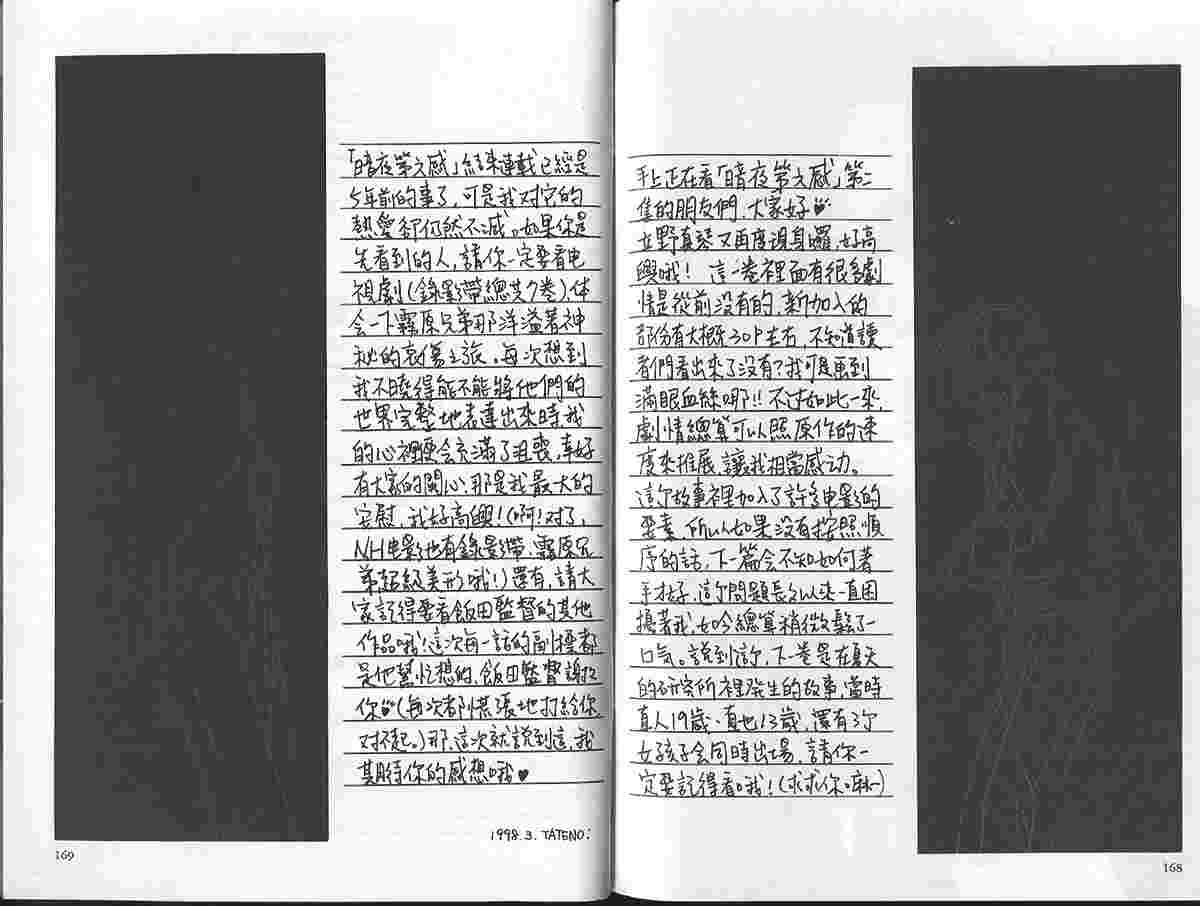 手上正在看「暗夜第六感」第二
集的朋友們，大家好♥
立野真琴又再度現身囉，好高
興哦！ 這一卷裡面有很多劇
情是從前沒有的，新加入的
部份有大概30P左右，不知道讀
者們看出來了沒有？我可是画到
滿眼血絲哪!! 不过如此一來，
劇情總算可以照原作的速
度來推展，讓我相當感动。
這个故事裡加入了許多电影的
要素，所以如果沒有按照順
序的話，下一篇会不知如何著
手才好，這个問題長久以來一直困
擾著我，如今總算稍微鬆了一
口气。說到這，下一卷是在夏天
的研究所裡發生的故事，當時
真人19歲、真也13歲，還有3个
女孩子会同時出場，請你一
定要記得看哦！(求求你嘛~)
168
「暗夜第六感」結束連載已經是
5年前的事了，可是我对它的
熱愛卻仍然不減。如果你是
先看到的人，請你一定要看电
視劇(錄影帶總共7卷)，体
会一下霧原兄弟那洋溢著神
秘的哀傷之旅。每次想到
我不曉得能不能將他們的
世界完整地表達出來時，我
的心裡便会充滿了沮喪，幸好
有大家的關心，那是我最大的
安慰，我好高興！(啊！对了，
NH电影也有錄影帶，霧原兄
弟超級美形哦！)還有，請大
家記得要看飯田監督的其他
作品哦！這次每一話的副標都
是他幫忙想的，飯田監督謝謝
你♥(每次都慌張地打給你，
对不起。)那，這次就說到這，我
期待你的感想哦♥
1998.3. TATENO.
169